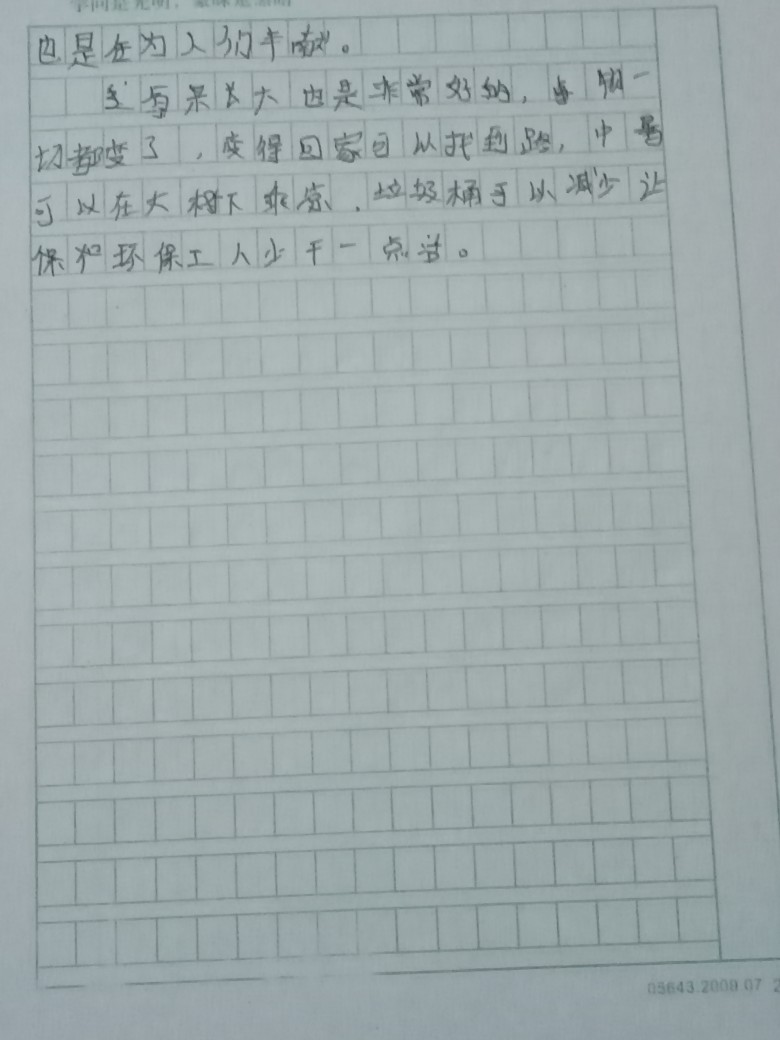 也是在为人们奉献。
与果长大也是非常好的，一
切都变了，变得回家可以找到路，中暑
可以在大树下乘凉．垃圾桶可以减少让
保护环保工人少干一点活。
05643.2009.07 2